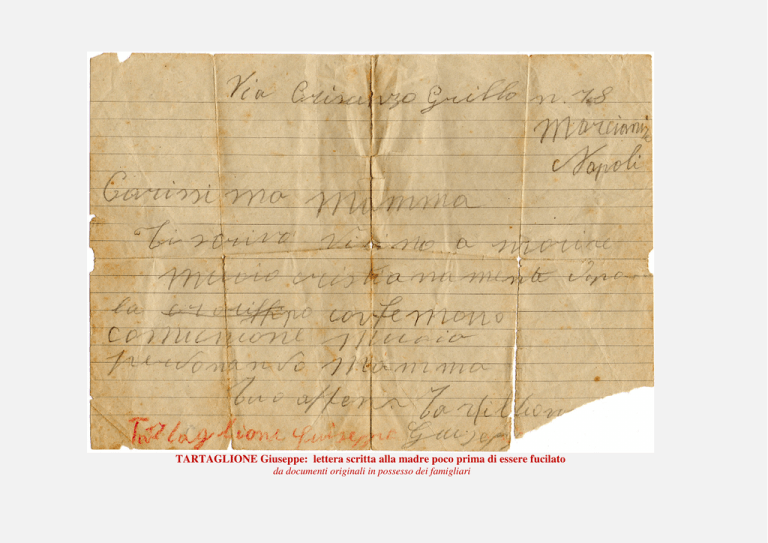 Via Criscenzo Grillo n. 78
Marciani
Napoli
Carissimo mamma
Ti scrivo vicino a morire
muoio cristianamente Dopo
la
comunione muoio
perdonando Mamma
Tuo
Tartaglione Giuseppe Giusep
TARTAGLIONE Giuseppe: lettera scritta alla madre poco prima di essere fucilato
da documenti originali in possesso dei famigliari